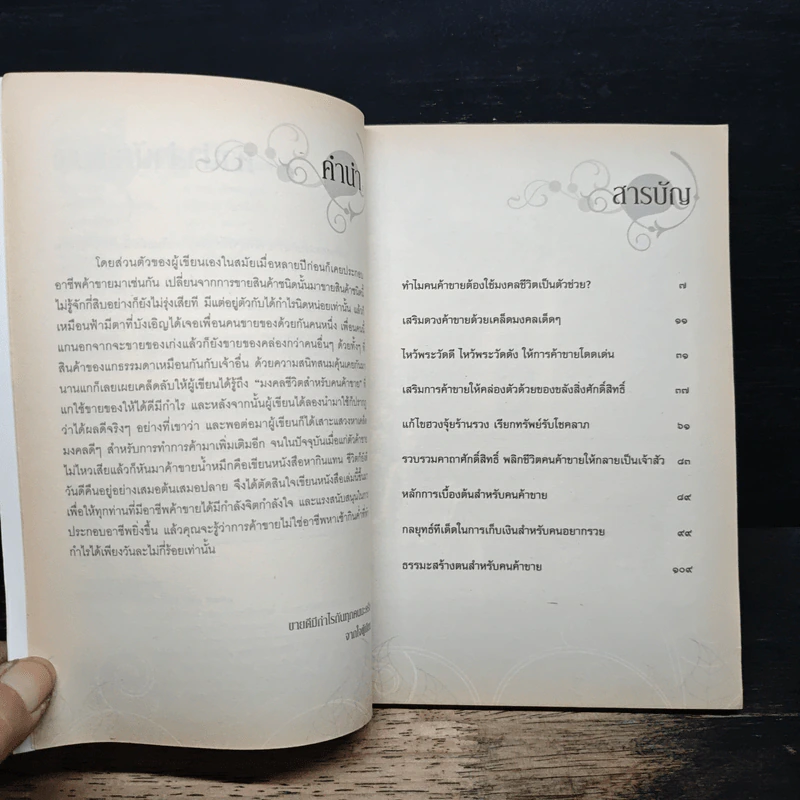 คำนำ
โดยส่วนตัวของผู้เขียนเองในสมัยเมื่อหลายปีก่อนก็เคยประกอบ
อาชีพค้าขายมาเช่นกัน เปลี่ยนจากการขายสินค้าชนิดนั้นมาขายสินค้าชนิดนี้
ไม่รู้จักกี่สิบอย่างก็ยังไม่รุ่งเสียที มีแต่อยู่ตัวกับได้กำไรนิดหน่อยเท่านั้น
เหมือนฟ้ามีตาที่บังเอิญได้เจอเพื่อนคนขายของด้วยกันคนหนึ่ง เพื่อนคนนี้
แกนอกจากจะขายของเก่งแล้วก็ยังขายของคล่องกว่าคนอื่นๆ ด้วยทั้งๆ
สินค้าของแกธรรมดาเหมือนกันกับเจ้าอื่น ด้วยความสนิทสนมคุ้นเคยกันมา
นานแกก็เลยเผยเคล็ดลับให้ผู้เขียนได้รู้ถึง “มงคลชีวิตสำหรับคนค้าขาย”
แกใช้ขายของให้ได้ดีมีกำไร และหลังจากนั้นผู้เขียนได้ลองนำมาใช้ก็
ว่าได้ผลดีจริงๆ อย่างที่เขาว่า และพอต่อมาผู้เขียนก็ได้เสาะแสวงหา
มงคลดีๆ สำหรับการทำการค้ามาเพิ่มเติมอีก จนในปัจจุบันเมื่อแก่ตัวค้าขาย
ไม่ไหวเสียแล้วก็หันมาค้าขายน้ำหมึกคือเขียนหนังสือหากินแทน ชีวิตก็ยัง
วันดีคืนอยู่อย่างเสมอต้นเสมอปลาย จึงได้ตัดสินใจเขียนหนังสือเล่มนี้ขึ้นมา
เพื่อให้ทุกท่านที่มีอาชีพค้าขายได้มีกำลังจิตกำลังใจ และแรงสนับสนุนในการ
ประกอบอาชีพยิ่งขึ้น แล้วคุณจะรู้ว่าการค้าขายไม่ใช่อาชีพหาเช้ากินค่ำที่
กำไรได้เพียงวันละไม่กี่ร้อยเท่านั้น
ขายดีมีกำไรกันทุกคนนะ
จากใจผู้เขียน
สารบัญ
ทำไมคนค้าขายต้องใช้มงคลชีวิตเป็นตัวช่วย? ๗
เสริมดวงค้าขายด้วยเคล็ดมงคลเด็ดๆ ๑๑
ไหว้พระวัดดี ไหว้พระวัดดัง ให้การค้าขายโดดเด่น ๓๑
เสริมการค้าขายให้คล่องตัวด้วยของขลังสิ่งศักดิ์สิทธิ์ ๓๗
แก้ไขฮวงจุ้ยร้านรวง เรียกทรัพย์รับโชคลาภ ๖๑
รวบรวมคาถาศักดิ์สิทธิ์ พลิกชีวิตคนค้าขายให้กลายเป็นเจ้าสัว ๘๓
หลักการเบื้องต้นสำหรับคนค้าขาย ๘๙
กลยุทธ์ทีเด็ดในการเก็บเงินสำหรับคนอยากรวย ๙๙
ธรรมะสร้างตนสำหรับคนค้าขาย ๑๐๙